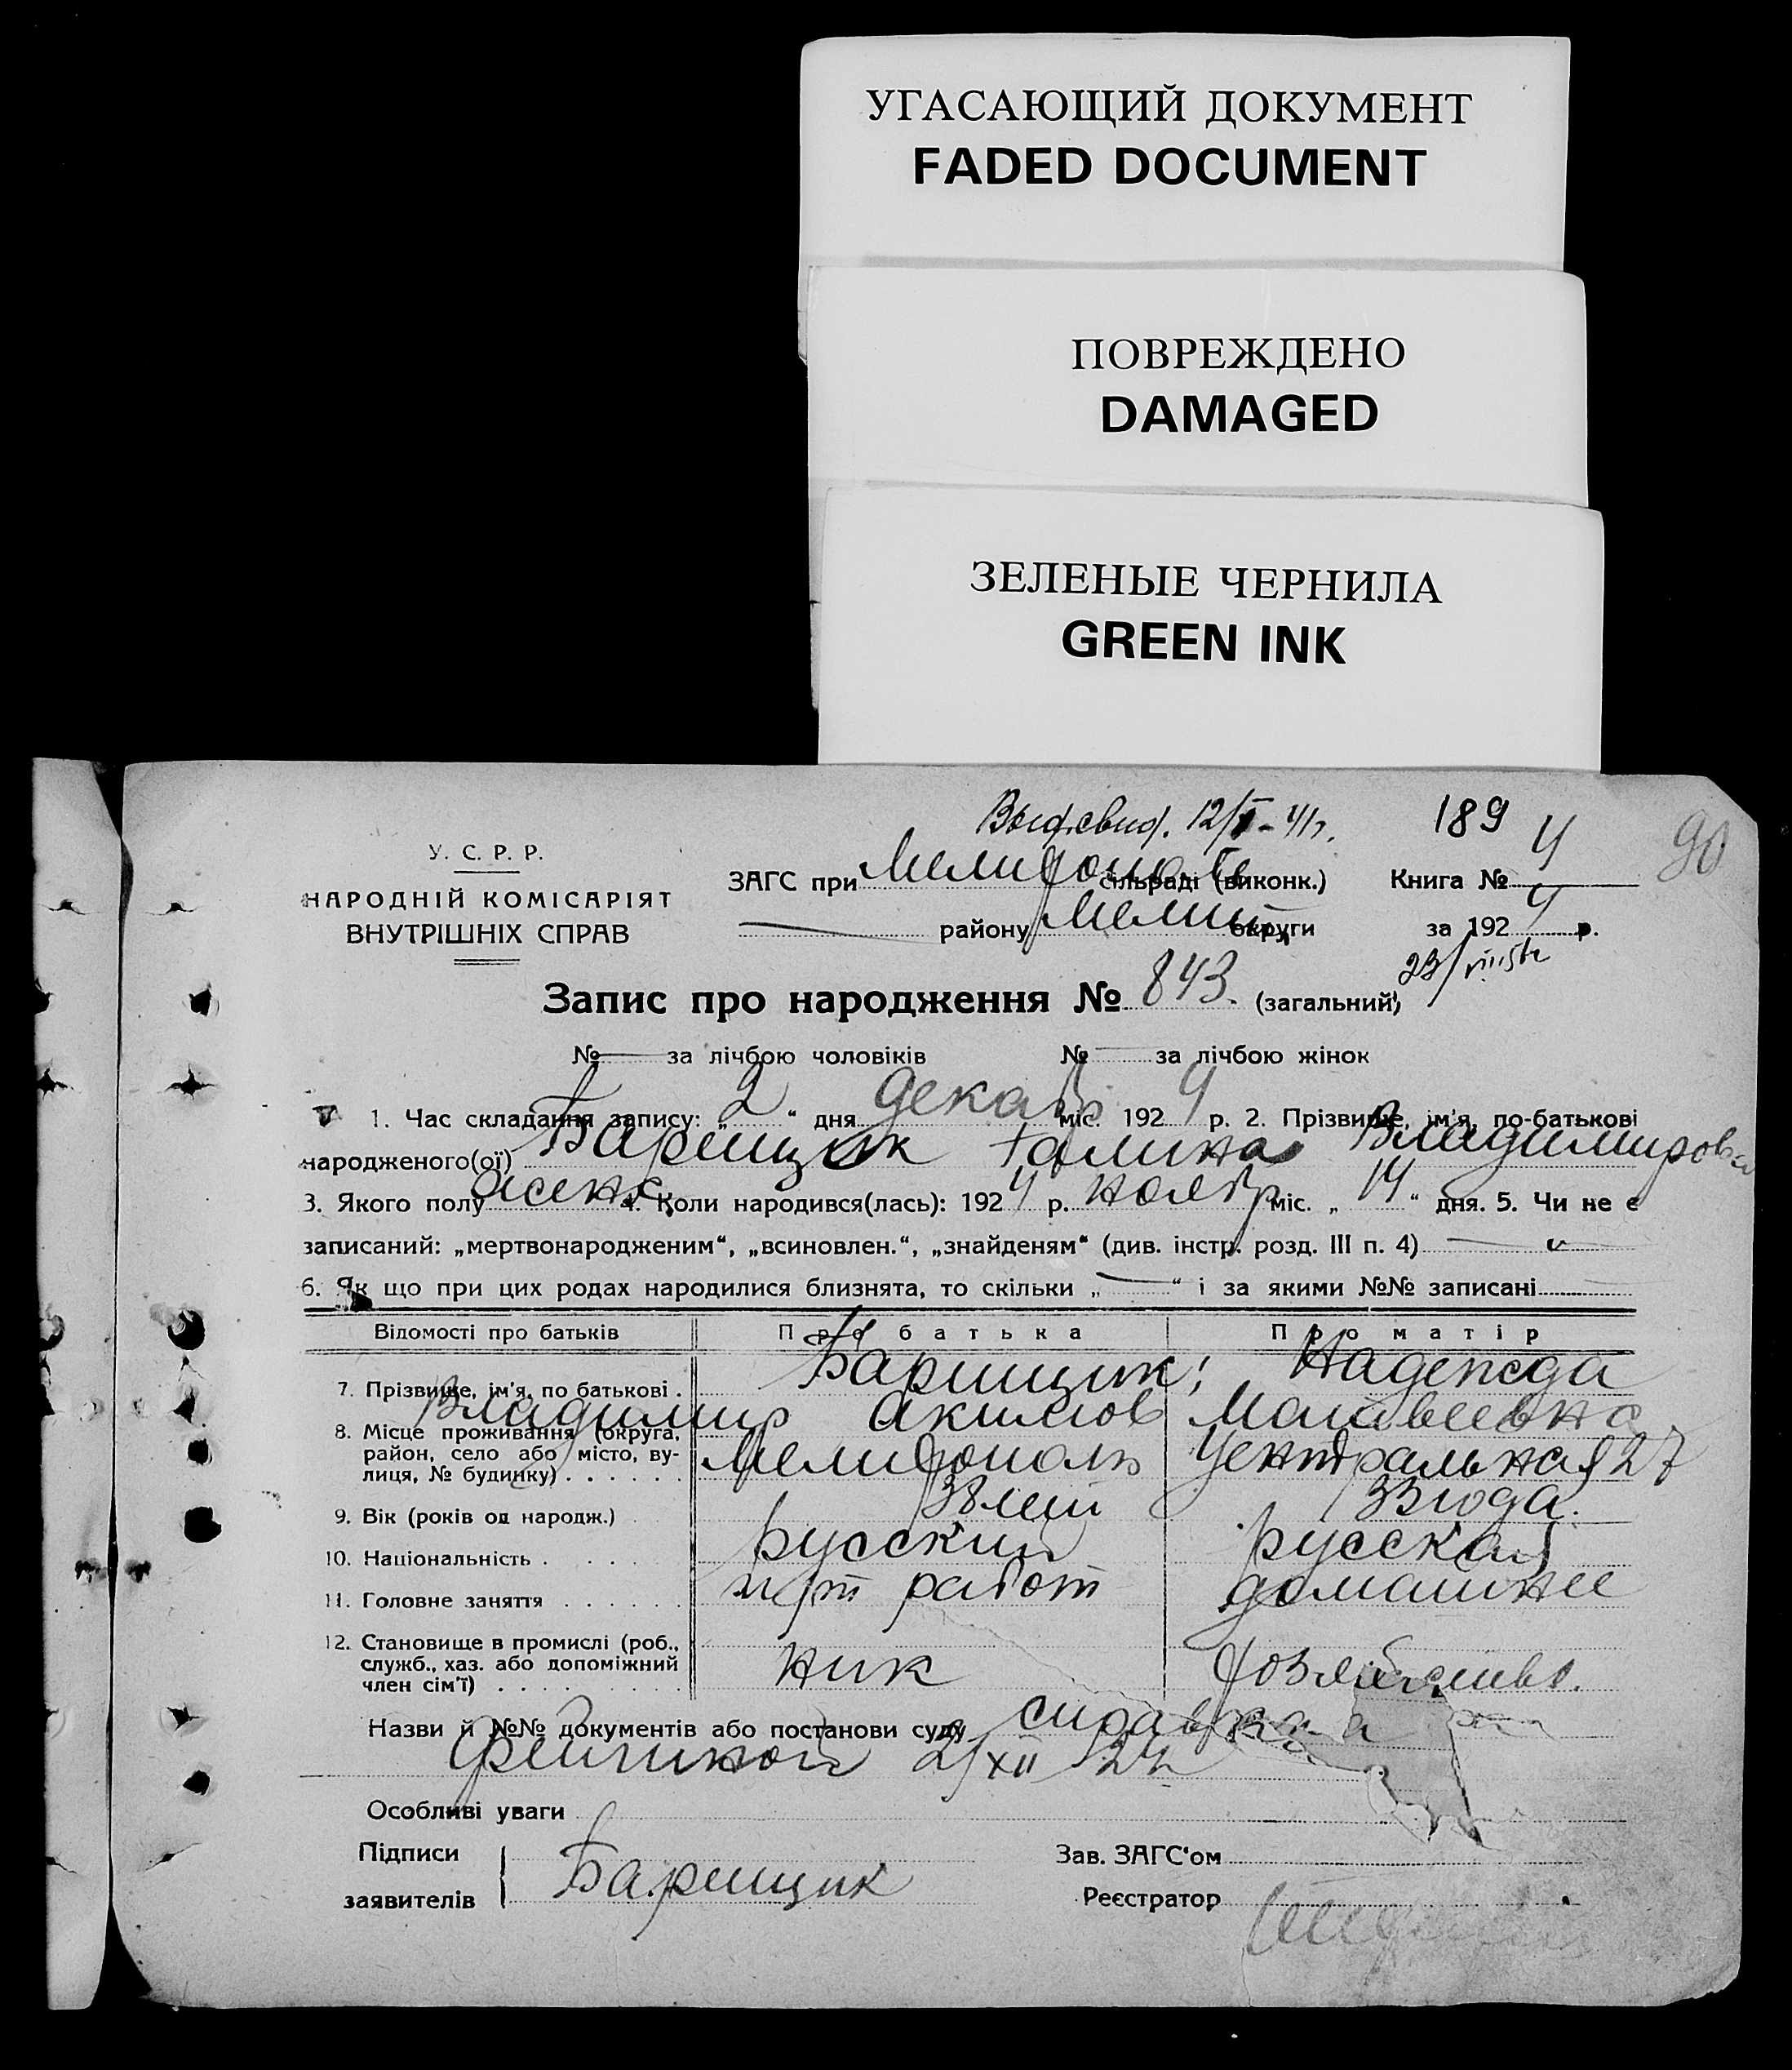 УГАСАЮЩИЙ ДОКУМЕНТ
FADED DOCUMENT
ПОВРЕЖДЕНО
DAMAGED
ЗЕЛЕНЫЕ ЧЕРНИЛА
GREEN INK
189
90
У. С. Р. Р.
НАРОДНІЙ КОМІСАРІЯТ
ВНУТРІШНІХ СПРАВ
ЗАГС при сільраді (виконк.) Книга № 4
району Мелит. округи за 1924 р.
Запис про народження № 843. (загальний)
№ за лічбою чоловіків № за лічбою жінок
1. Час складання запису: „2“ дня декабр міс. 1924 р. 2. Прізвище, ім'я, по-батькові
народженого(ої) Барищик Галина Владимировна
3. Якого полу женс. 4. Коли народився(лась): 1924 р. ноябр міс. „14“ дня. 5. Чи не є
записаний: „мертвонародженим“, „всиновлен.“, „знайденям“ (див. інстр. розд. III п. 4)
6. Як що при цих родах народилися близнята, то скільки „ “ і за якими №№ записані
Відомості про батьків Про батька Про матір
7. Прізвище, ім'я, по батькові . Барищик Надежда
Владимир Акимов
8. Місце проживання (округа,
район, село або місто, ву-
лиця, № будинку) . . . . . . Мелитополь Центральная 27
9. Вік (років од народж.) 38 лет 33 года.
10. Національність . . . . русский русская
11. Головне заняття . . . . . . работ домашнее
12. Становище в промислі (роб.,
служб., хаз. або допоміжний
член сім'ї) . . . . . . . . . ник
Назви й №№ документів або постанови суду справка
2/XII 24
Особливі уваги
Підписи
заявителів Барищик
Зав. ЗАГС'ом
Реєстратор